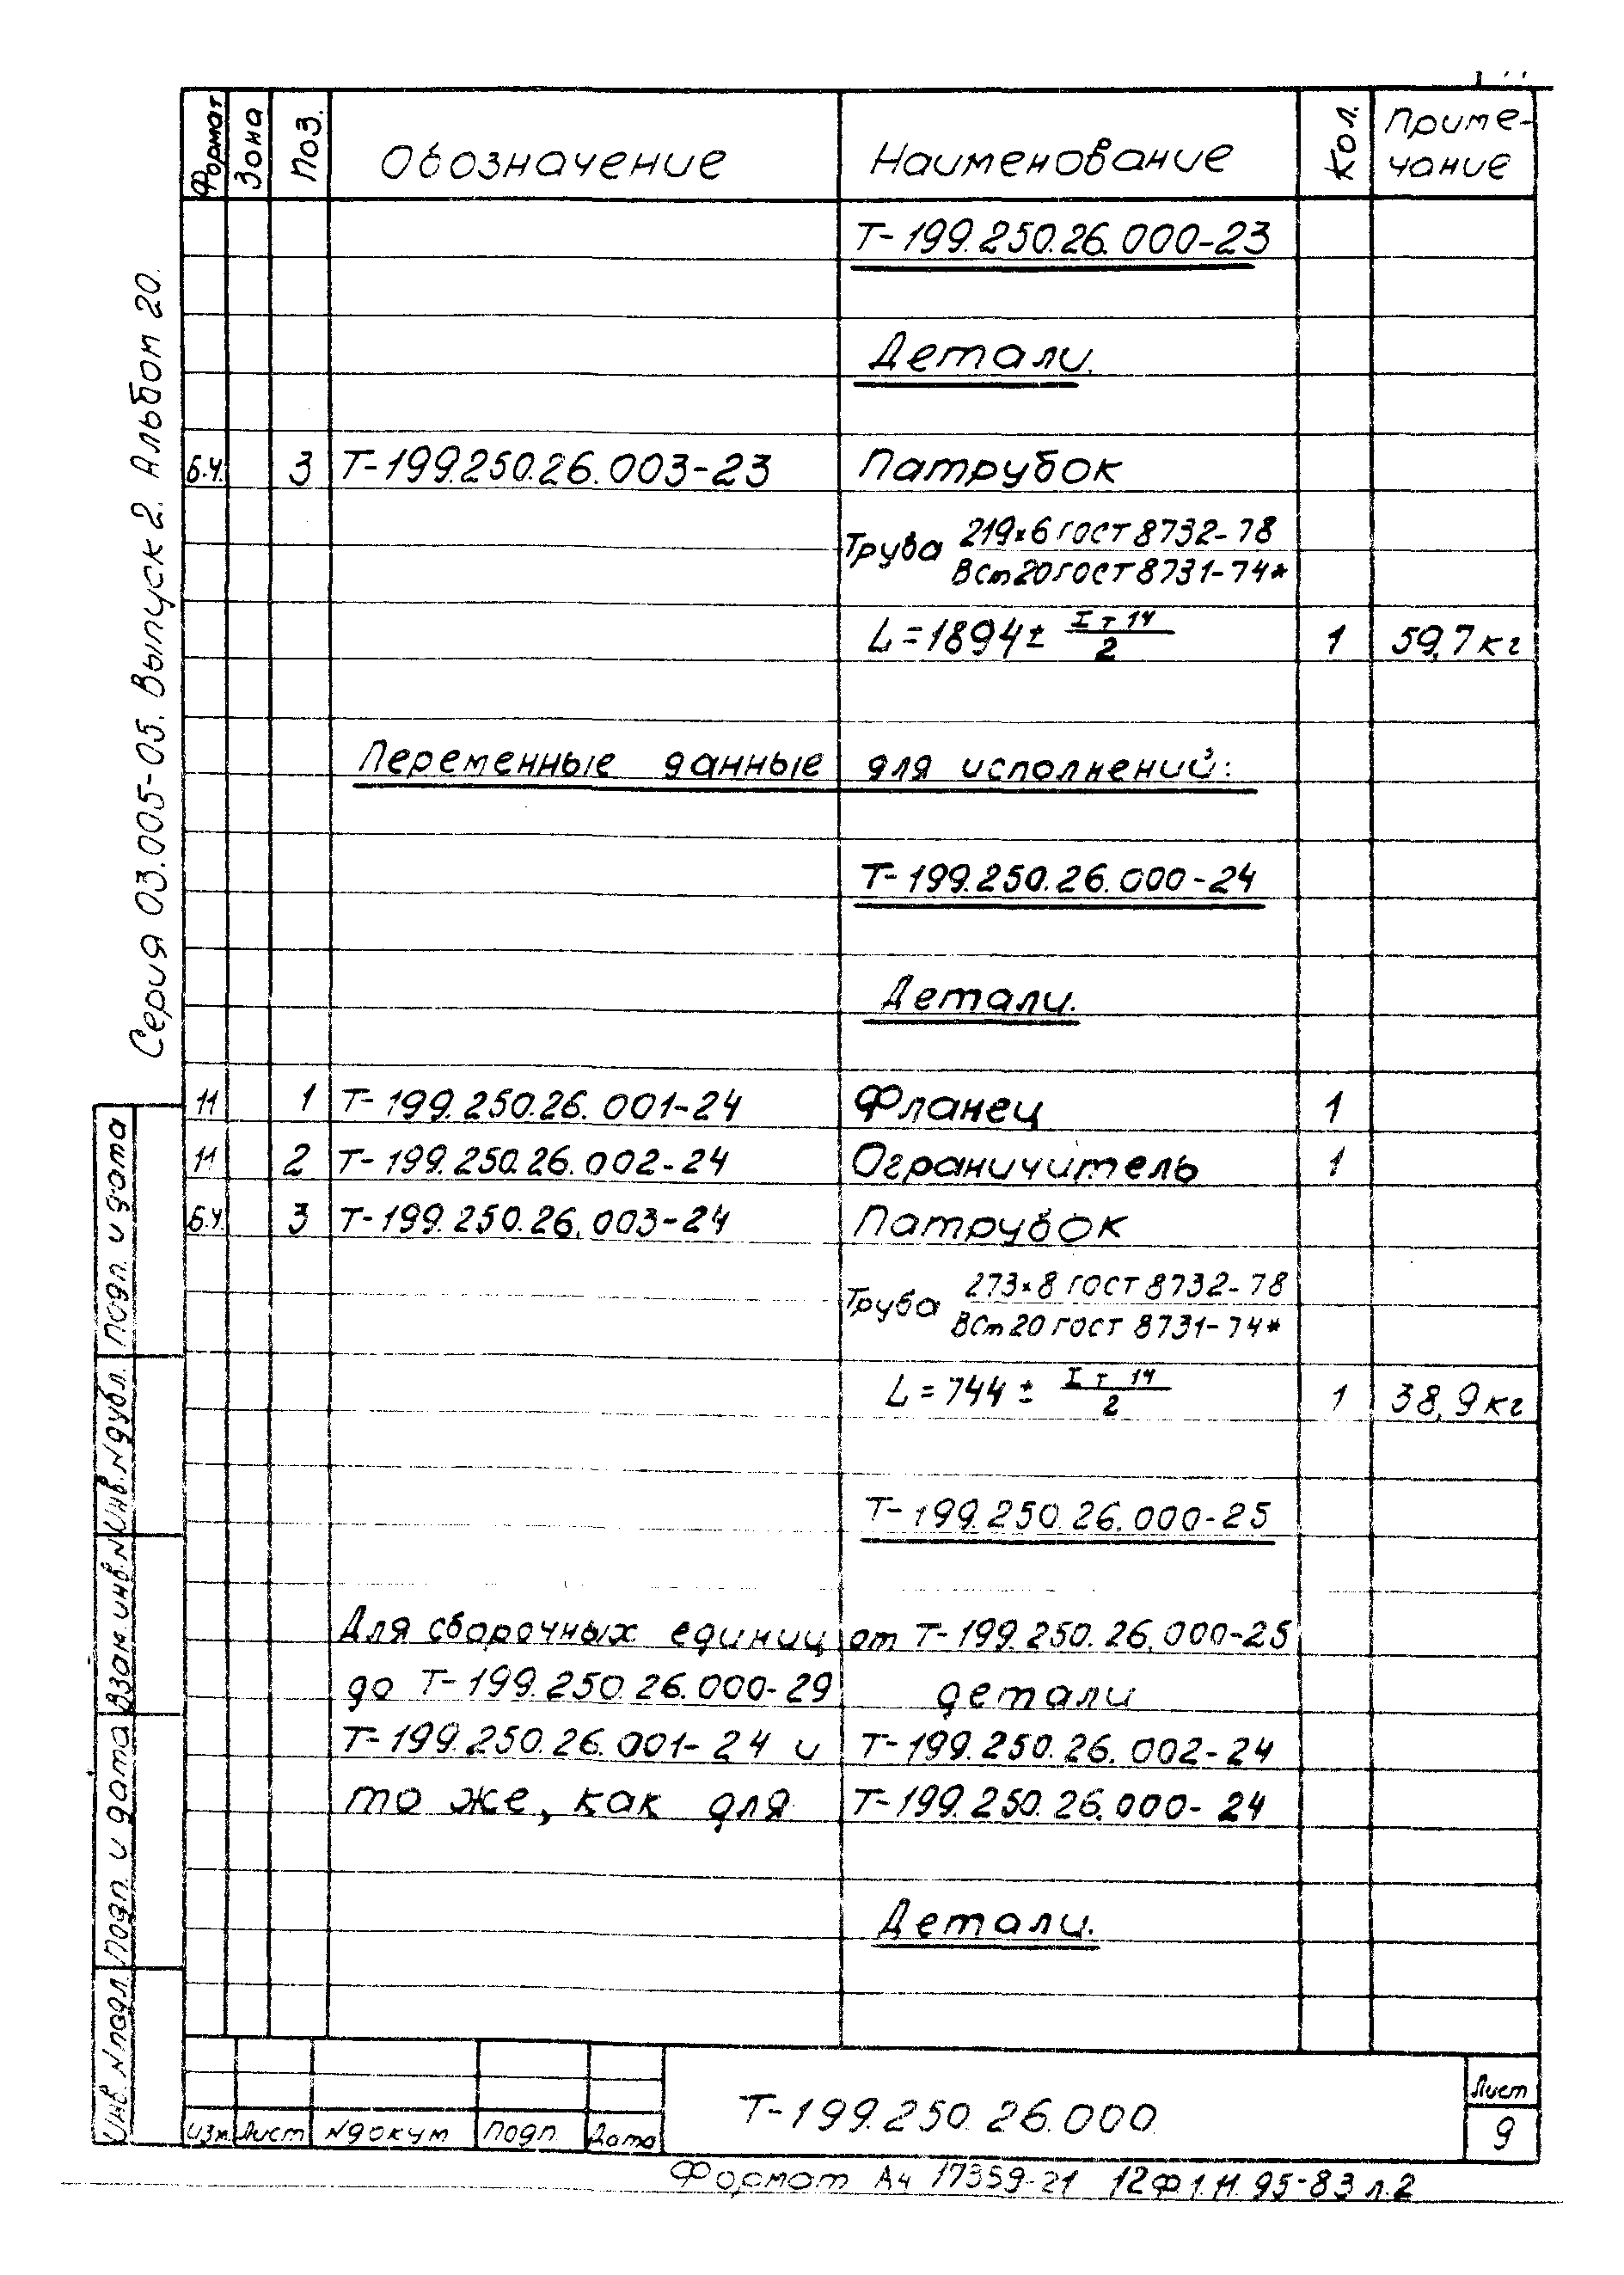 Формат Зона Поз. Обозначение Наименование Кол. Приме-
чание
Т-199.250.26.000-23
Детали.
Б.Ч. 3 Т-199.250.26.003-23 Патрубок
Труба 219×6 ГОСТ 8732-78
ВСт20 ГОСТ 8731-74*
L=1894± IT14/2 1 59,7кг
Переменные данные для исполнений:
Т-199.250.26.000-24
Детали.
11 1 Т-199.250.26.001-24 Фланец 1
11 2 Т-199.250.26.002-24 Ограничитель 1
Б.Ч. 3 Т-199.250.26.003-24 Патрубок
Труба 273×8 ГОСТ 8732-78
ВСт20 ГОСТ 8731-74*
L=744± IT14/2 1 38,9кг
Т-199.250.26.000-25
Для сборочных единиц от Т-199.250.26.000-25
до Т-199.250.26.000-29 детали
Т-199.250.26.001-24 и Т-199.250.26.002-24
то же, как для Т-199.250.26.000-24
Детали.
Серия 03.005-05. Выпуск 2. Альбом 20.
Подп. и дата
Инв.N дубл.
Взам.инв.N
Подп. и дата
Инв. N подл.
Изм. Лист N докум Подп. Дата
Т-199.250.26.000
Лист
9
Формат А4 17359-21 12Ф.1.11.95-83 л.2